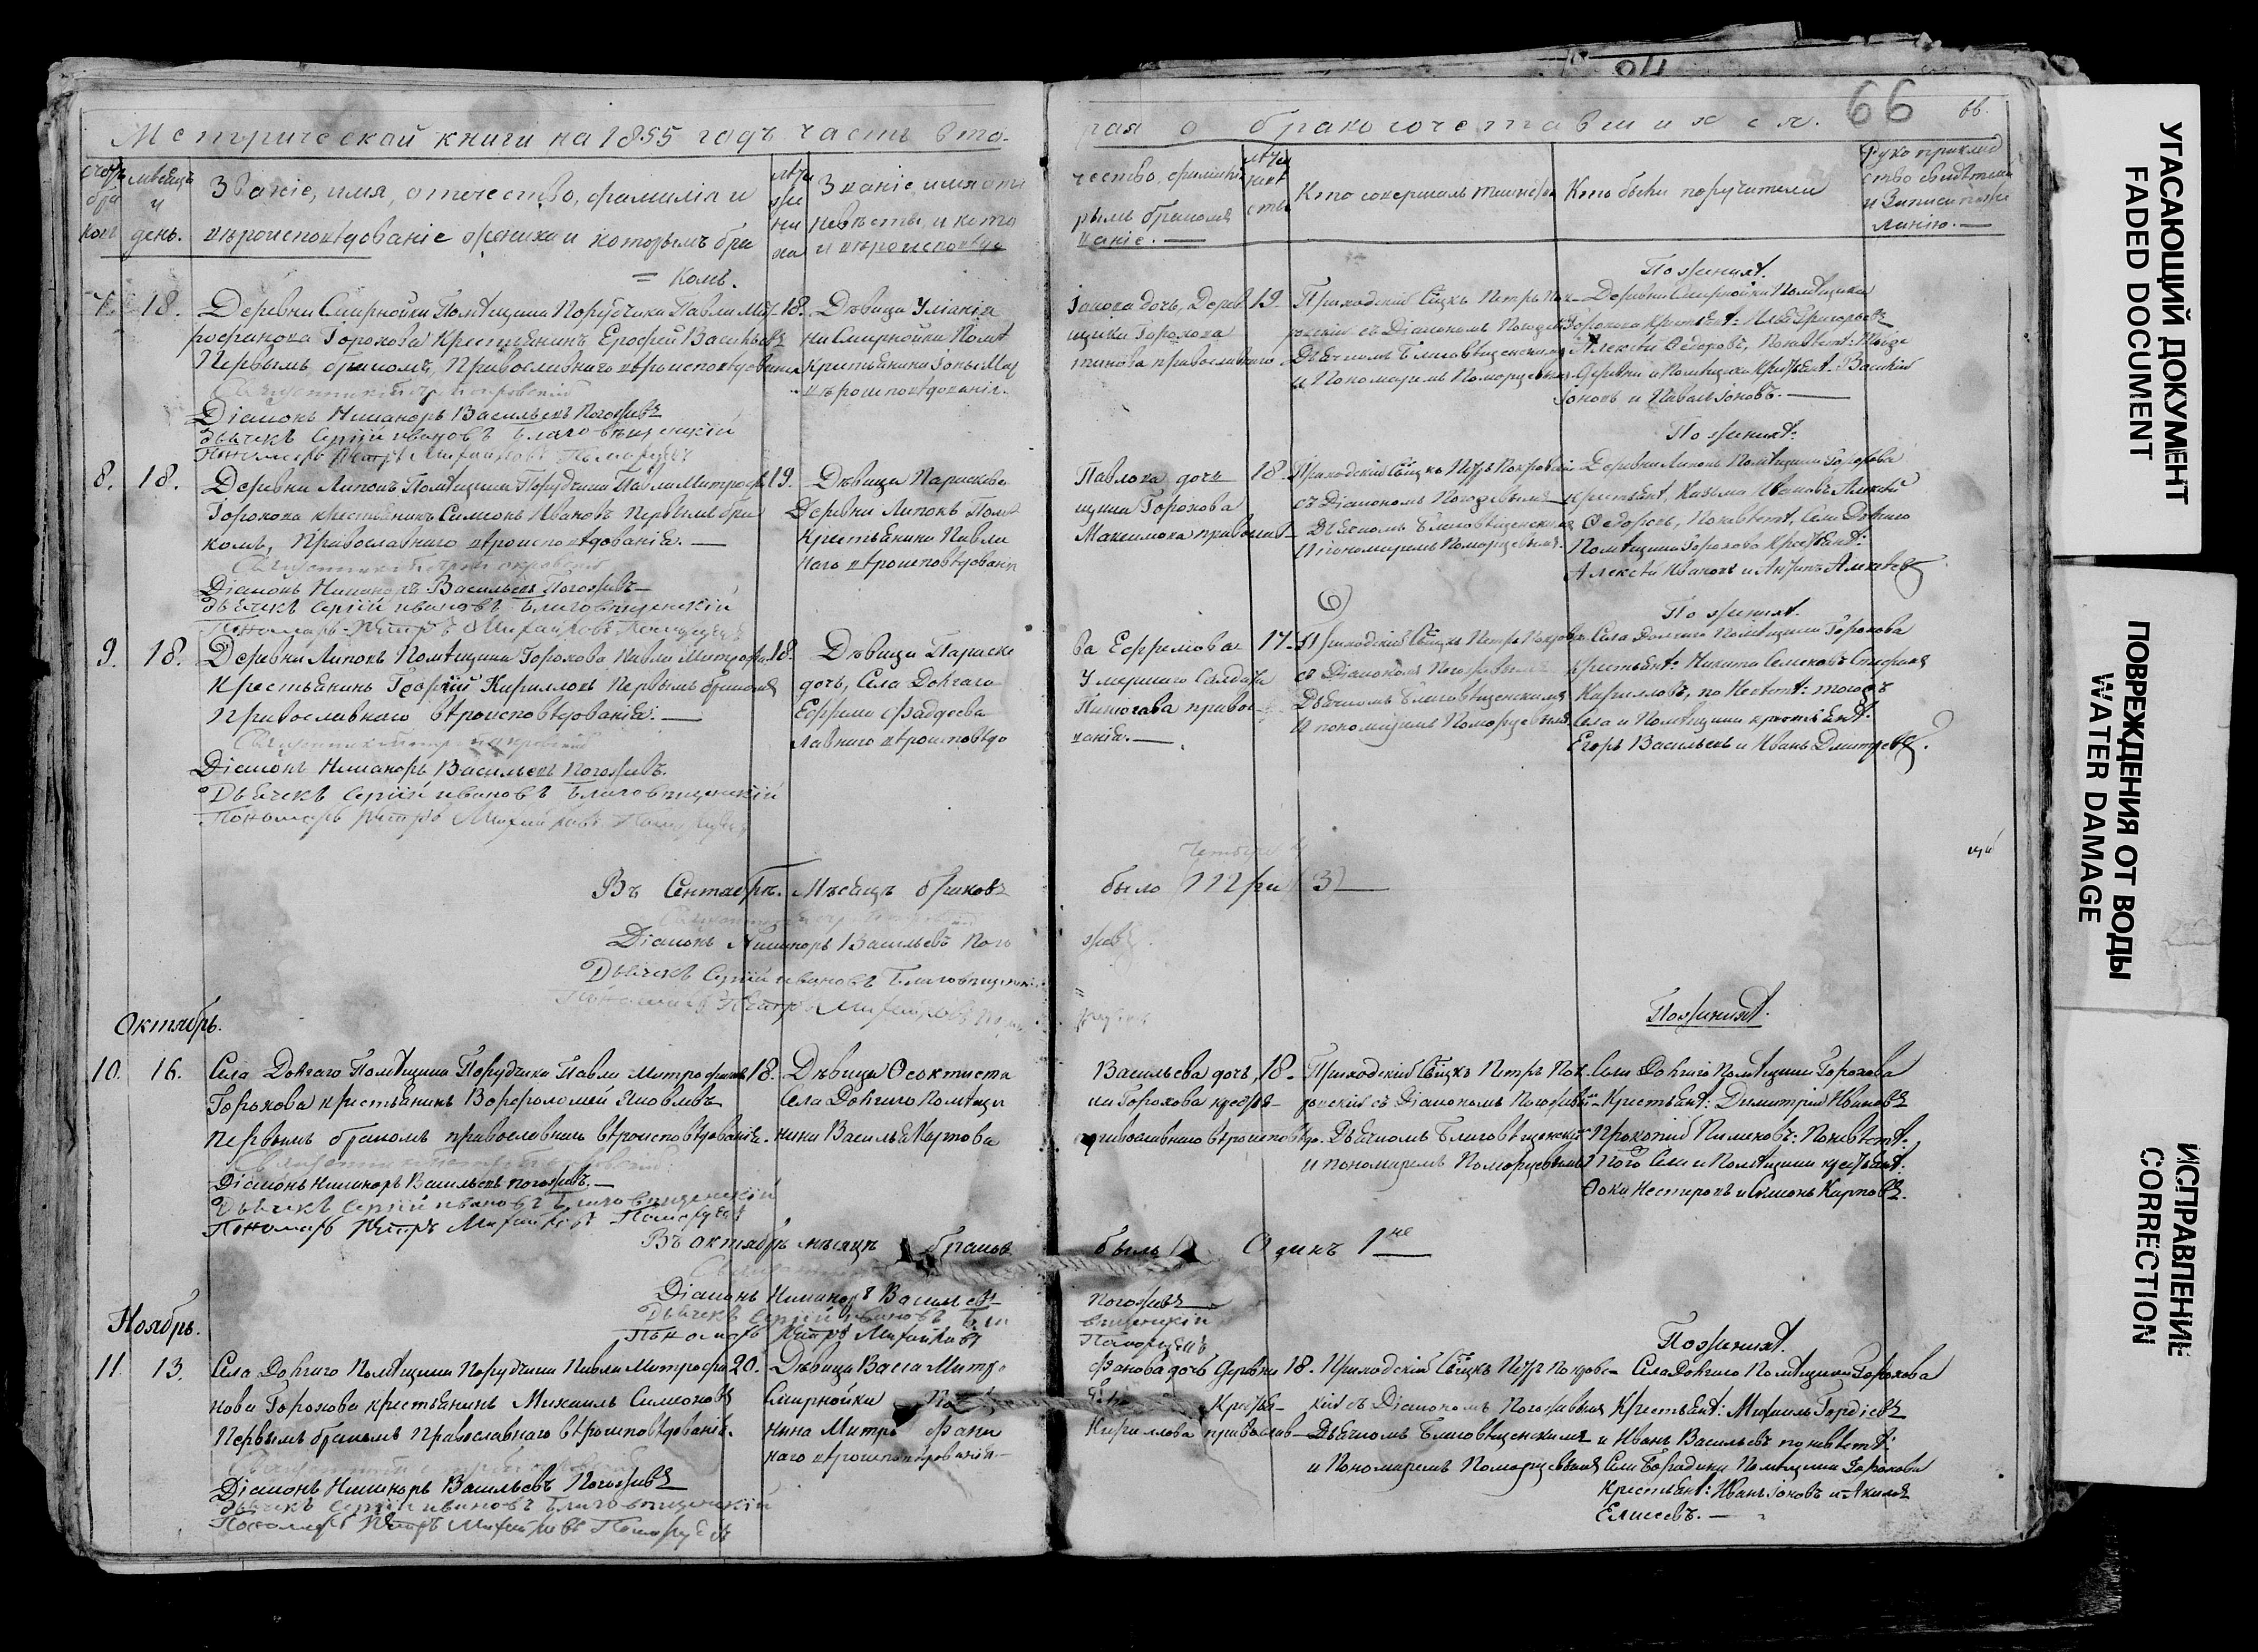 Метрической книги на 1855 годъ часть вто-
рая о бракосочетавшихся. 66 66.
Счетъ бра ковъ
мѣсяцъ и день.
Званіе, имя, отечество, фамилія и
вѣроисповѣданіе жениха и которымъ бра
= комъ.
лѣта же ни ха
Званіе имя оте
невѣсты, и кото
и вѣроисповѣда
чество, фамилія
рымъ бракомъ
ваніе. —
лѣта
Кто совершалъ таинство
Кто были поручители
Рукоприклад
ство свидѣтелей
и Записи по же
ланію. —
7. 18. Деревни Смирнойки Помѣщика Порутчика Павла Мит-
рофанова Горохова Крестьянинъ Ерофей Васильевъ
Первымъ бракомъ, Православнаго вѣроисповѣданія
Діаконъ Никаноръ Васильевъ Погожевъ
Дьячекъ Сергій Ивановъ Благовѣщенскій
Пономарь Петръ Михайловъ Поморцевъ
18. Дѣвица Уліанія
ни Смирнойки Помѣ
крестьянина Іоны Мар
вѣроисповѣданія.
Іонова дочь, Дерев
щика Горохова
тинова православнаго
19. Приходскій Свщкъ Петръ Пок-
ровскій съ Діакономъ Погожевымъ
Дьячкомъ Благовѣщенскимъ
и Пономаремъ Поморцевымъ.
По женихѣ.
Деревни Смирнойки Помѣщика
Горохова Крестьянѣ: Илья Григорьевъ
Алексѣй Ѳедоровъ, По невѣстѣ: Тойже
деревни и Помѣщика крестьянѣ. Василій
Іоновъ и Павелъ Іоновъ. —
8. 18. Деревни Липокъ Помѣщика Порутчика Павла Митроф.
Горохова крестьянинъ Симеонъ Ивановъ первымъ бра
комъ, Православнаго вѣроисповѣданія. —
Діаконъ Никаноръ Васильевъ Погожевъ
Дьячекъ Сергій Ивановъ Благовѣщенскій
Пономарь Петръ Михайловъ Поморцевъ
19. Дѣвица Параскева
Деревни Липокъ Помѣ
Крестьянина Павла
наго вѣроисповѣданія
Павлова дочь
щика Горохова
Максимова православ-
18. Приходскій Свщкъ Петръ Покровскій
съ Діакономъ Погожевымъ
Дьячкомъ Благовѣщенскимъ
и пономаремъ Поморцевымъ.
По женихѣ:
Деревни Липокъ Помѣщика Горохова
крестьянѣ, Казьма Ивановъ Алексѣй
Ѳедоровъ, По невѣстѣ, Села Долгаго
Помѣщика Горохова Крестьянѣ:
Алексѣй Ивановъ и Антипъ Алексѣевъ
9. 18. Деревни Липокъ Помѣщика Горохова Павла Митроф.
Крестьянинъ Георгій Кирилловъ Первымъ бракомъ
Православнаго вѣроисповѣданія. —
Діаконъ Никаноръ Васильевъ Погожевъ.
Дьячекъ Сергій Ивановъ Благовѣщенскій
Пономарь Петръ Михайловъ Поморцевъ
18. Дѣвица Параске
дочь, Села Долгаго
Ефрема Фаддеева
лавнаго вѣроисповѣда
ва Ефремова
Умершаго Солдата
правос-
ванія. —
17. Приходскій Свщкъ Петръ Покровск.
съ Діакономъ Погожевымъ
Дьячкомъ Благовѣщенскимъ
и пономаремъ Поморцевымъ
По женихѣ.
Села Долгаго Помѣщика Горохова
крестьянѣ: Никита Семеновъ Стефанъ
Кирилловъ, по Невѣстѣ: тогожъ
Села и Помѣщика крестьянѣ:
Егоръ Васильевъ и Иванъ Дмитревъ.
Въ Сентябрѣ Мѣсяцѣ браковъ было три (3) —
Діаконъ Никаноръ Васильевъ Пого жевъ.
Дьячекъ Сергій Ивановъ Благовѣщенскій
Пономарь Петръ Михайловъ
Октябрь.
10. 16. Села Долгаго Помѣщика Порутчика Павла Митрофанов
Горохова крестьянинъ Ворфоломей Яковлевъ
первымъ бракомъ православнаго вѣроисповѣданія.
Діаконъ Никаноръ Васильевъ Погожевъ. —
Дьячекъ Сергій Ивановъ Благовѣщенскій
Пономарь Петръ Михайловъ Поморцевъ
18. Дѣвица Ѳеоктиста
Села Долгаго Помѣщи
нина Василья Карпова
Васильева дочь,
ка Горохова крестья-
православнаго вѣроисповѣда.
18. Приходскій Свщкъ Петръ Пок.
ровскій съ Діакономъ Погожевымъ
Дьячкомъ Благовѣщенскимъ
и пономаремъ Поморцевымъ
По женихѣ.
Села Долгаго Помѣщика Горохова
Крестьянѣ: Димитрій Ивановъ
Прокопій Пименовъ: По невѣстѣ:
Того Села и Помѣщика крестьянѣ:
Фока Нестеровъ и Симонъ Карповъ.
Въ октябрѣ мѣсяцѣ браковъ былъ Одинъ 1не
Діаконъ Никаноръ Васильевъ Погожевъ
Дьячекъ Сергій Ивановъ Благовѣщенскій
Пономарь Петръ Михайловъ Поморцевъ
Ноябрь.
11. 13. Села Долгаго Помѣщика Порутчика Павла Митрофа
нова Горохова крестьянинъ Михаилъ Симеоновъ
Первымъ бракомъ Православнаго вѣроисповѣданія.
Діаконъ Никаноръ Васильевъ Погожевъ
Дьячекъ Сергій Ивановъ Благовѣщенскій
Пономарь Петръ Михайловъ Поморцевъ
20. Дѣвица Васса Митро
Смирнойки
нина Митро фана
наго вѣроисповѣданія —
фанова дочь деревни
Крестья-
Кириллова православ-
18. Приходскій Свщкъ Петръ Покровс-
кій съ Діакономъ Погожевымъ
Дьячкомъ Благовѣщенскимъ
и Пономаремъ Поморцевымъ
По женихѣ.
Села Долгаго Помѣщика Горохова
Крестьянѣ: Михаилъ Гордіевъ
и Иванъ Васильевъ по невѣстѣ:
Села Помѣщика Горохова
Крестьянѣ: Иванъ Іоновъ и Акимъ
Елисеевъ. —
УГАСАЮЩИЙ ДОКУМЕНТ
FADED DOCUMENT
ПОВРЕЖДЕНИЯ ОТ ВОДЫ
WATER DAMAGE
ИСПРАВЛЕНИЕ
CORRECTION